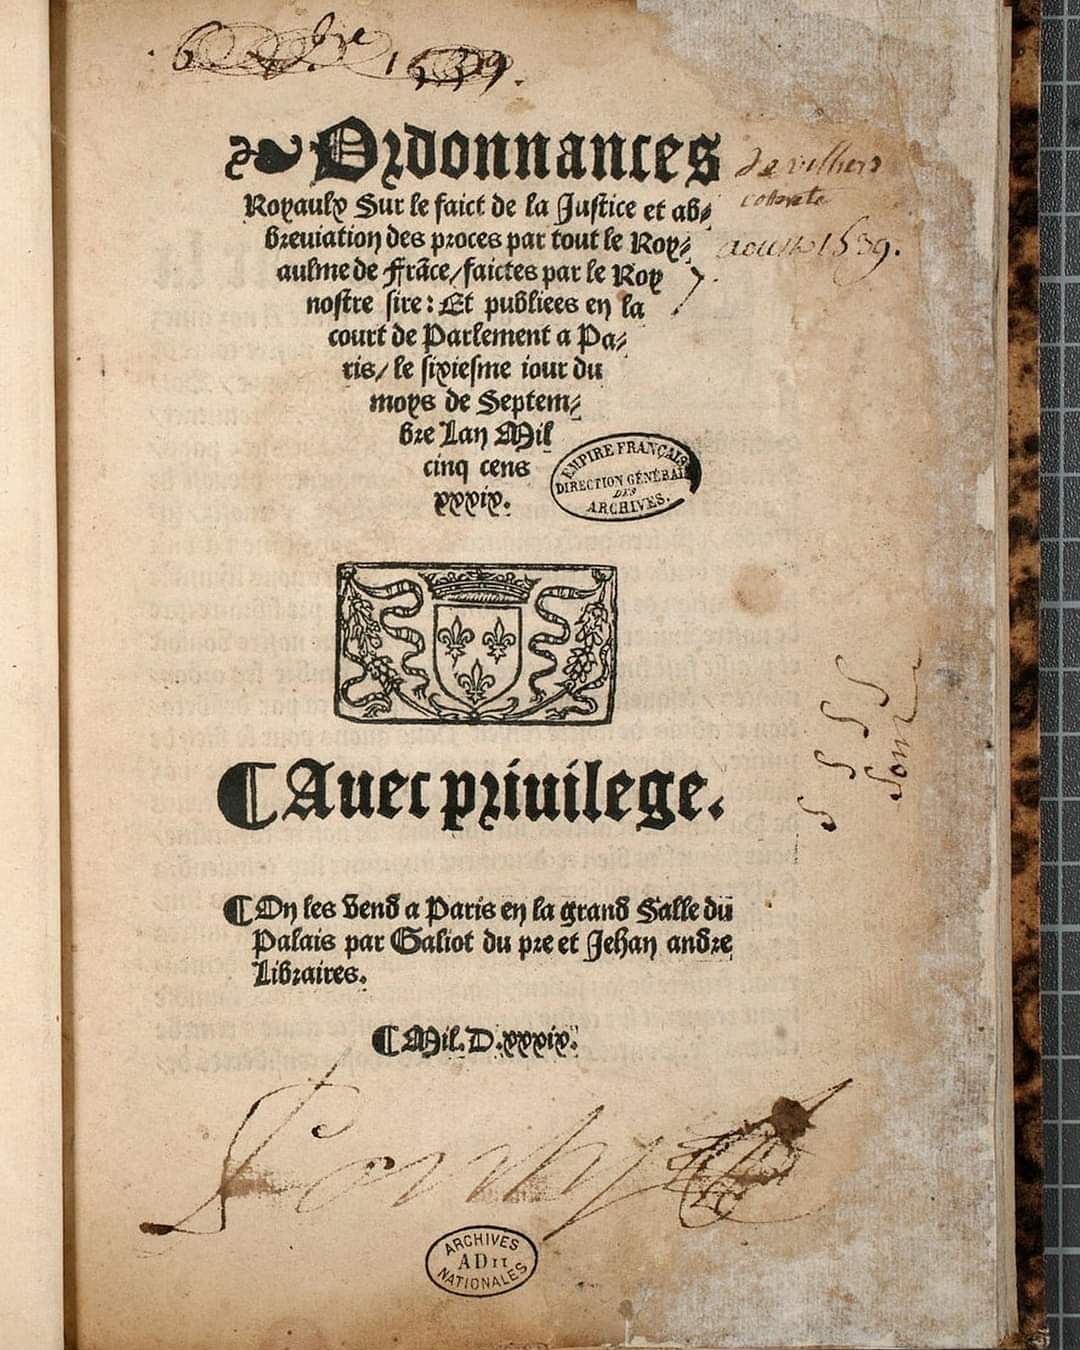 6. 7bre 1539.
Ordonnances
Royaulx Sur le faict de la Justice et ab⸗
breviation des proces par tout le Roy⸗
aulme de Frãce/faictes par le Roy
nostre sire: Et publiees en la
court de Parlement a Pa⸗
ris/ le sixiesme iour du
moys de Septem⸗
bre Lan Mil
cinq cens
xxxix.
de villiers
aoust 1539.
EMPIRE FRANÇAIS
DIRECTION GÉNÉRALE
DES
ARCHIVES.
¶ Auec priuilege.
¶ On les vend a Paris en la grand Salle du
Palais par Galiot du pre et Jehan andre
Libraires.
¶ Mil. D. xxxix.
ARCHIVES
AD II
NATIONALES